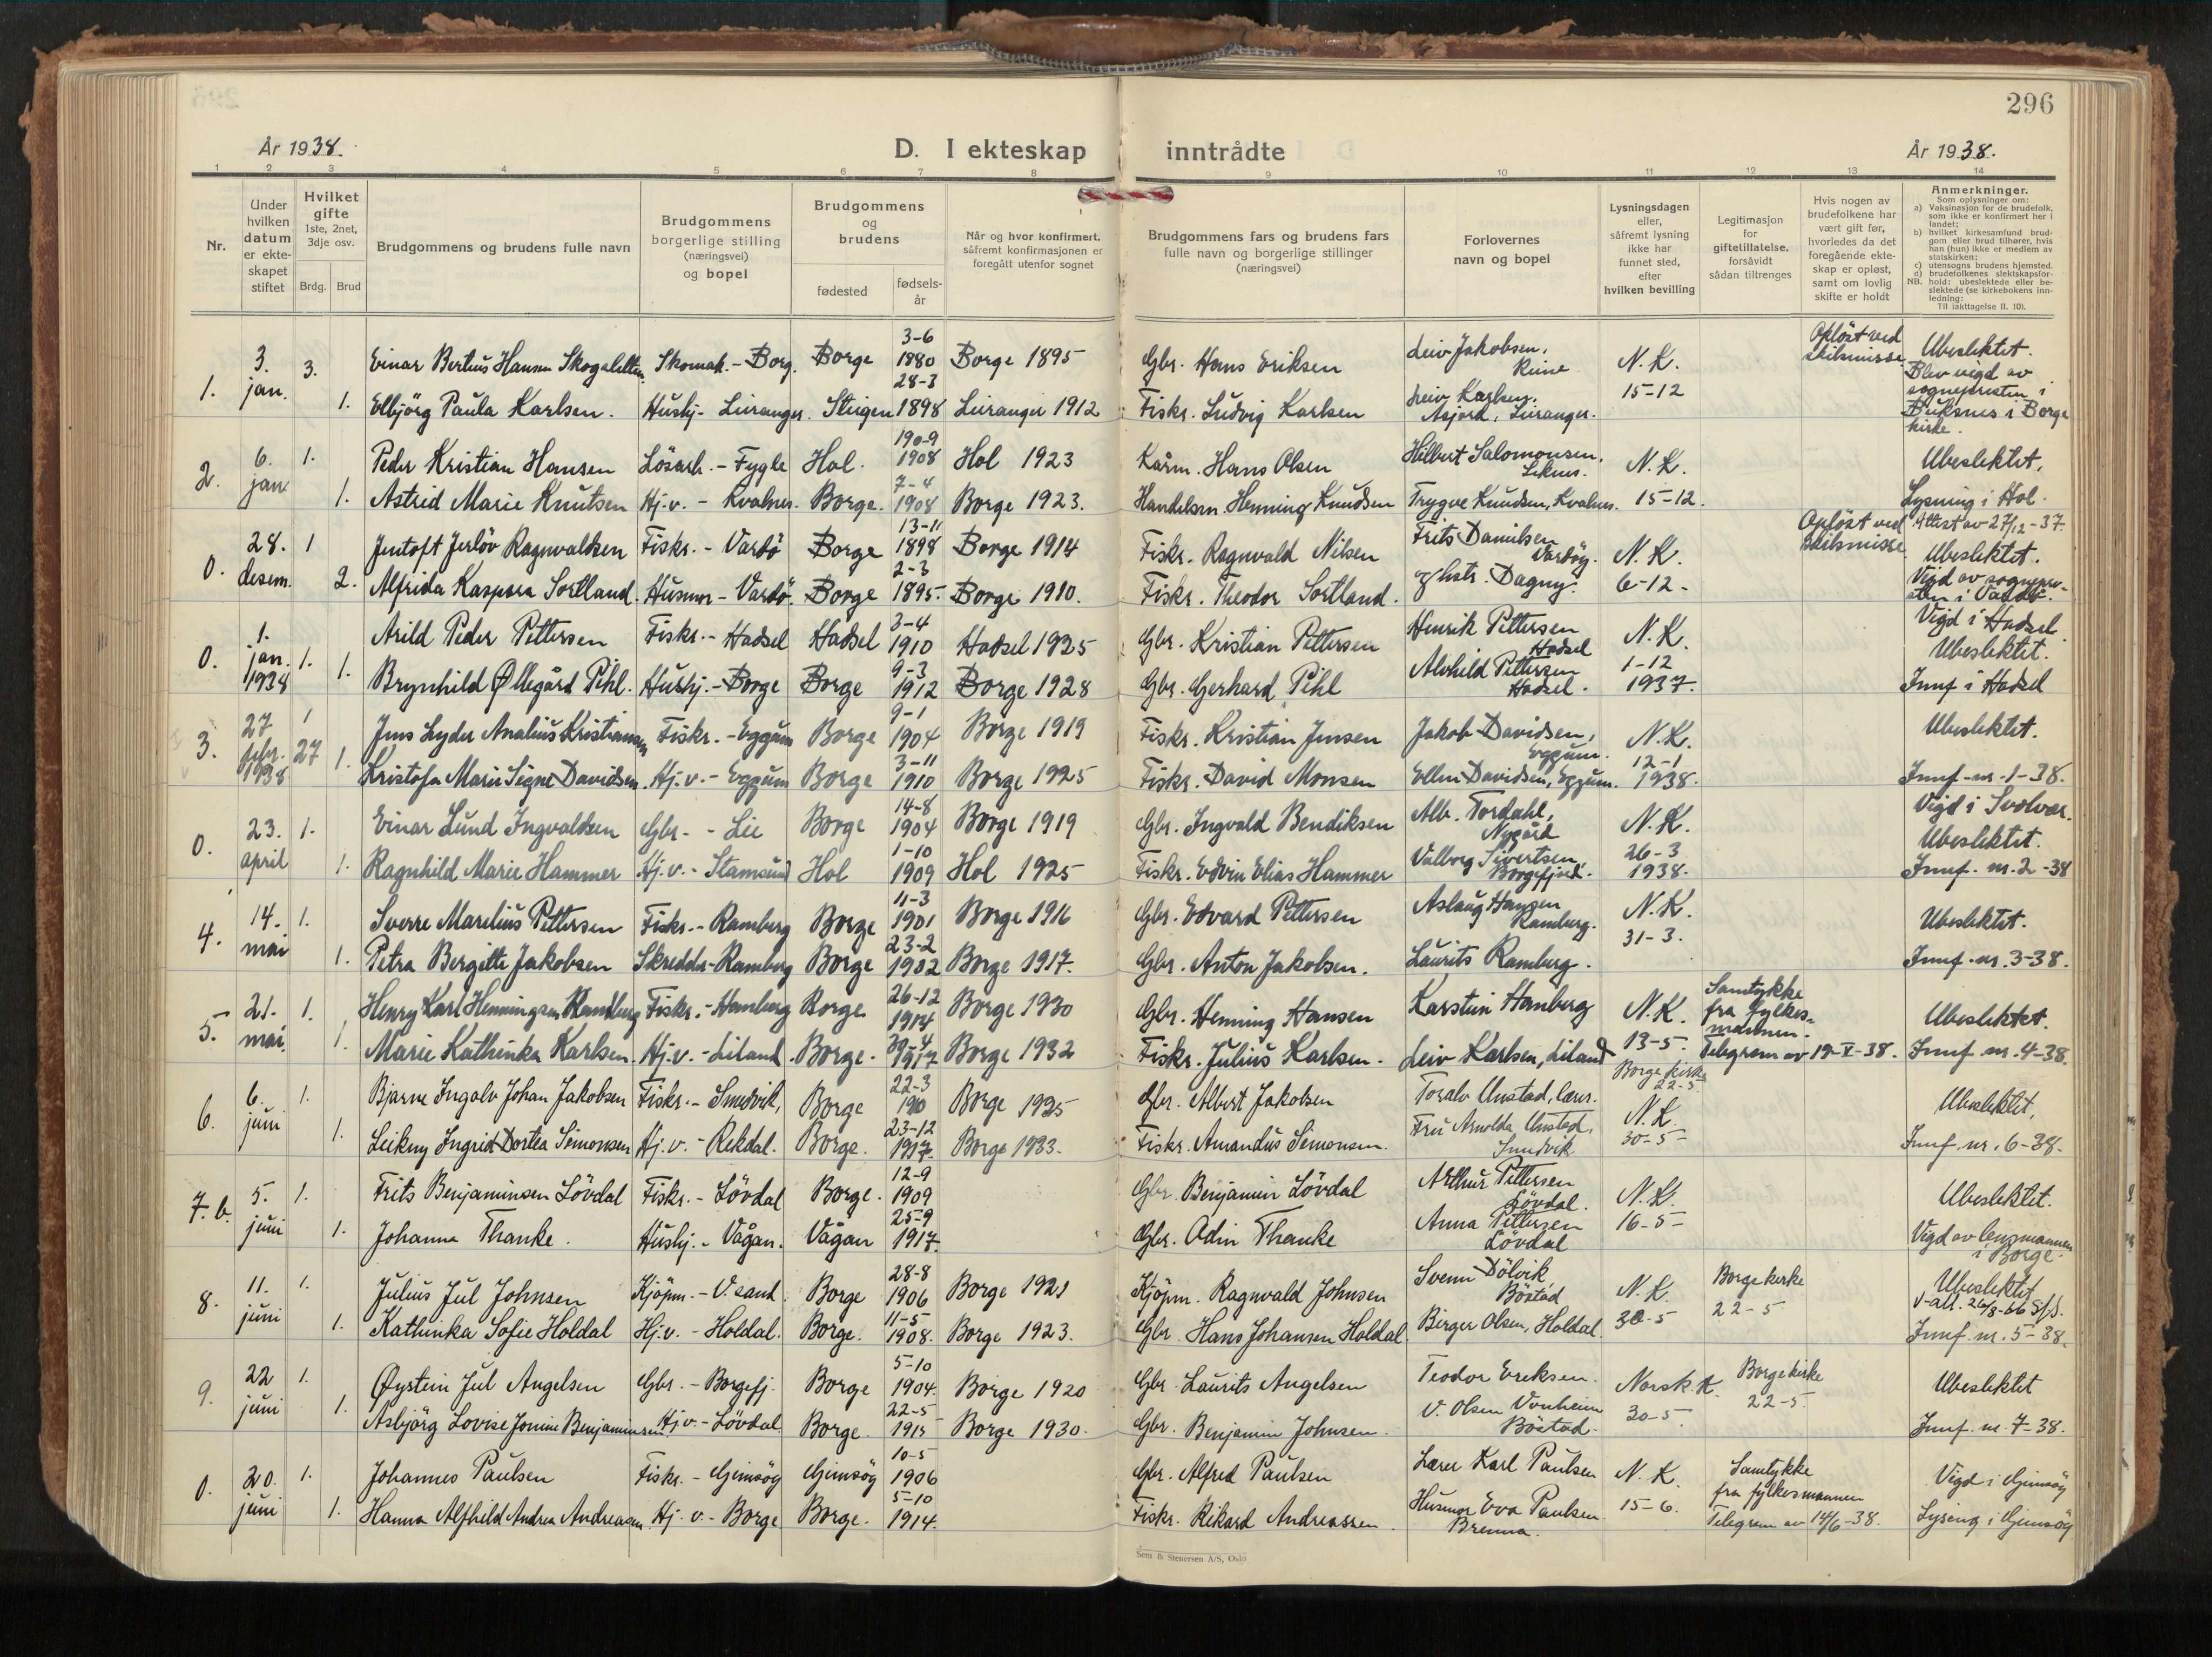 296
År 1938.
D. I ekteskap inntrådte
År 1938.
1 2 3 4 5 6 7 8 9 10 11 12 13 14
Nr.
Under hvilken datum er ekteskapet stiftet
Hvilket gifte 1ste, 2net, 3dje osv.
Brdg. Brud
Brudgommens og brudens fulle navn
Brudgommens borgerlige stilling (næringsvei) og bopel
Brudgommens og brudens
fødested
fødselsår
Når og hvor konfirmert, såfremt konfirmasjonen er foregått utenfor sognet
Brudgommens fars og brudens fars fulle navn og borgerlige stillinger (næringsvei)
Forlovernes navn og bopel
Lysningsdagen eller, såfremt lysning ikke har funnet sted, efter hvilken bevilling
Legitimasjon for giftetillatelse, forsåvidt sådan tiltrenges
Hvis nogen av brudefolkene har vært gift før, hvorledes da det foregående ekteskap er opløst, samt om lovlig skifte er holdt
Anmerkninger.
Som oplysninger om:
a) Vaksinasjon for de brudefolk, som ikke er konfirmert her i landet;
b) hvilket kirkesamfund brudgom eller brud tilhører, hvis han (hun) ikke er medlem av statskirken;
c) utensogns brudens hjemsted.
d) brudefolkenes slektskapsforhold: ubeslektede eller beslektede (se kirkebokens innledning:
NB.
Til iakttagelse II. 10).
1. 3. jan. 3. Einar Bertius Hansen Skogakilten Skomak. - Borg. Borge 3-6 1880 Borge 1895 Gbr. Hans Eriksen Leiv Jakobsen, Reine N. K. 15-12 Opløst ved skilsmisse Ubeslektet. Blev vigd av sognepresten i Buksnes i Borge kirke.
1. Elbjörg Paula Karlsen. Hushj. - Leiranger. Steigen 28-3 1898 Leiranger 1912 Fiskr. Ludvig Karlsen Leiv Karlsen, Asjord, Leiranger.
2. 6. jan. 1. Peder Kristian Hansen Lösarb. - Fygle Hol. 190-9 1908 Hol 1923 Karm. Hans Olsen Hilbert Salomonsen, Leknes. N. K. 15-12. Ubeslektet.
1. Astrid Marie Knutsen Hj.v. - Kvalnes. Borge. 7-4 1908 Borge 1923. Handelsm. Henning Knudsen Trygve Knudsen, Kvalnes. Lysning i Hol. Attest av 27/12-37.
0. 28. desem. 1 Jentoft Jerlöv Ragnvaldsen Fiskr. - Vardö Borge 13-11 1898 Borge 1914 Fiskr. Ragnvald Nilsen Frits Danielsen Vardöy. N. K. 6-12- Opløst ved skilsmisse Ubeslektet.
2. Alfrida Kaspara Sortland. Husmor - Vardö. Borge 2-3 1895. Borge 1910. Fiskr. Theodor Sortland. og hstr. Dagny. Vigd av sognepresten i Vardö.
0. 1. jan. 1938 1. Arild Peder Pettersen Fiskr. - Hadsel Hadsel 3-4 1910 Hadsel 1925 Gbr. Kristian Pettersen Henrik Pettersen Hadsel N. K. 1-12 1937. Vigd i Hadsel. Ubeslektet.
1. Brynhild Øllegård Pihl. Hushj. - Borge Borge 9-3 1912 Borge 1928 Gbr. Gerhard Pihl Alvhild Pettersen Hadsel. Innf i Hadsel
3. 27 febr. 1938 1 27 Jens Lyder Analius Kristiansen Fiskr. - Eggum Borge 9-1 1904 Borge 1919 Fiskr. Kristian Jensen Jakob Davidsen, Eggum. N. K. 12-1 1938. Ubeslektet.
1. Kristofa Marie Signe Davidsen. Hj.v. - Eggum Borge 3-11 1910 Borge 1925 Fiskr. David Monsen Ellen Davidsen, Eggum. Innf. nr. 1-38.
0. 23. april 1. Einar Lund Ingvaldsen Gbr. - Lie Borge 14-8 1904 Borge 1919 Gbr. Ingvald Bendiksen Alb. Tordahl, Nygård N. K. 26-3 1938. Vigd i Svolvær. Ubeslektet.
1. Ragnhild Marie Hammer Hj.v. - Stamsund Hol 1-10 1909 Hol 1925 Fiskr. Edvin Elias Hammer Valborg Sivertsen, Borgefjord. Innf. nr. 2-38
4. 14. mai 1. Sverre Marelius Pettersen Fiskr. - Ramberg Borge 11-3 1901 Borge 1916 Gbr. Edvard Pettersen Aslaug Hansen Ramberg. N. K. 31-3. Ubeslektet.
1. Petra Bergitte Jakobsen Skredder - Ramberg Borge 23-2 1902 Borge 1917. Gbr. Anton Jakobsen. Laurits Ramberg. Innf. nr. 3-38.
5. 21. mai. 1. Henry Karl Henningsen Hamberg Fiskr. - Hamberg Borge 26-12 1914 Borge 1930 Gbr. Henning Hansen Karstein Hamberg N. K. 13-5. Samtykke fra fylkesmannen. Telegram av 19-V-38. Ubeslektet.
1. Marie Kathinka Karlsen. Hj.v. - Liland. Borge. 30-4 1917 Borge 1932 Fiskr. Julius Karlsen. Leiv Karlsen, Liland Innf nr. 4-38.
6. 6. juni 1. Bjarne Ingolv Johan Jakobsen Fiskr. - Smedvik, Borge 22-3 1910 Borge 1925 Gbr. Albert Jakobsen Toralv Unstad, lærer. Borge kirke 22-5 N. K. 30-5- Ubeslektet.
1. Leikny Ingrid Dortea Simonsen Hj.v. - Rekdal. Borge. 23-12 1917. Borge 1933. Fiskr. Amandus Simonsen. Fru Arnolda Unstad, Smedvik Innf. nr. 6-38.
7. b. 5. juni 1. Frits Benjaminsen Lövdal Fiskr. - Lövdal Borge. 12-9 1909 Gbr. Benjamin Lövdal Arthur Pettersen Lövdal. N. K. 16-5- Ubeslektet.
1. Johanna Thanke. Hushj. - Vågan. Vågan 25-9 1917. Gbr. Odin Thanke Anna Pettersen Lövdal Vigd av lensmannen i Borge.
8. 11. juni 1. Julius Jul Johnsen Kjöpm. - V. sand. Borge 28-8 1906 Borge 1921 Kjöpm. Ragnvald Johnsen Svenn Dölvik, Böstad N. K. 30-5 Borge kirke 22-5 Ubeslektet v-att. 26/8-66
1. Kathinka Sofie Holdal Hj.v. - Holdal. Borge. 11-5 1908. Borge 1923. Gbr. Hans Johansen Holdal. Birger Olsen, Holdal. Innf. nr. 5-38.
9. 22 juni 1. Øystein Jul Angelsen Gbr. - Borgefj. Borge 5-10 1904. Borge 1920 Gbr. Laurits Angelsen Teodor Ereksen. Norsk. K. 30-5. Borge kirke 22-5. Ubeslektet
1. Asbjörg Lovise Jonine Benjaminsen Hj.v. - Lövdal. Borge. 22-5 1915 Borge 1930. Gbr. Benjamin Johnsen. V. Olsen Vonheim Böstad. Innf. nr. 7-38.
0. 20. juni 1. Johannes Paulsen Fiskr. - Gimsöy Gimsöy 10-5 1906 Gbr. Alfred Paulsen Lærer Karl Paulsen N. K. 15-6. Samtykke fra fylkesmannen Telegram av 14/6-38. Vigd i Gimsöy
1. Hanna Alfhild Andrea Andreasen. Hj.v. - Borge Borge. 5-10 1914. Fiskr. Rikard Andreassen. Husmor Eva Paulsen Brenna. Lysning i Gimsöy
Sem & Stenersen A/S, Oslo